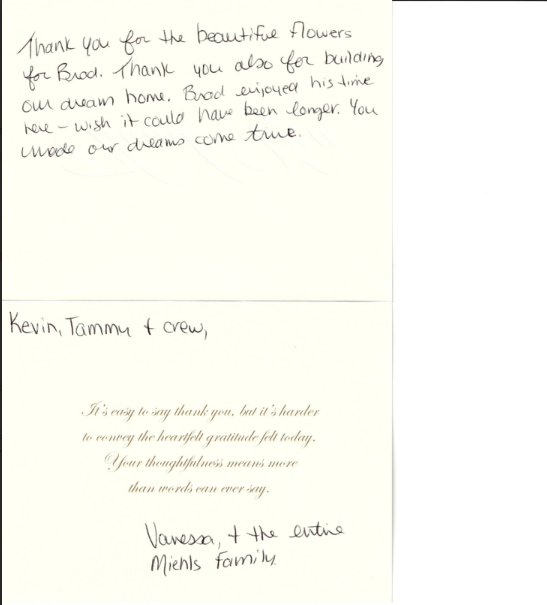 Thank you for the beautiful flowers
for Brad. Thank you also for building
our dream home. Brad enjoyed his time
here - wish it could have been longer. You
made our dreams come true.
Kevin, Tammy + crew,
It's easy to say thank you, but it's harder
to convey the heartfelt gratitude felt today.
Your thoughtfulness means more
than words can ever say.
Vanessa, + the entire
Miehls Family